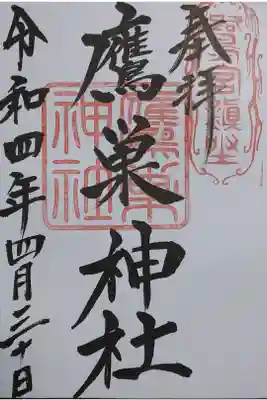 奉拝
鷹巣神社
令和四年四月三十日
鷹巣神社